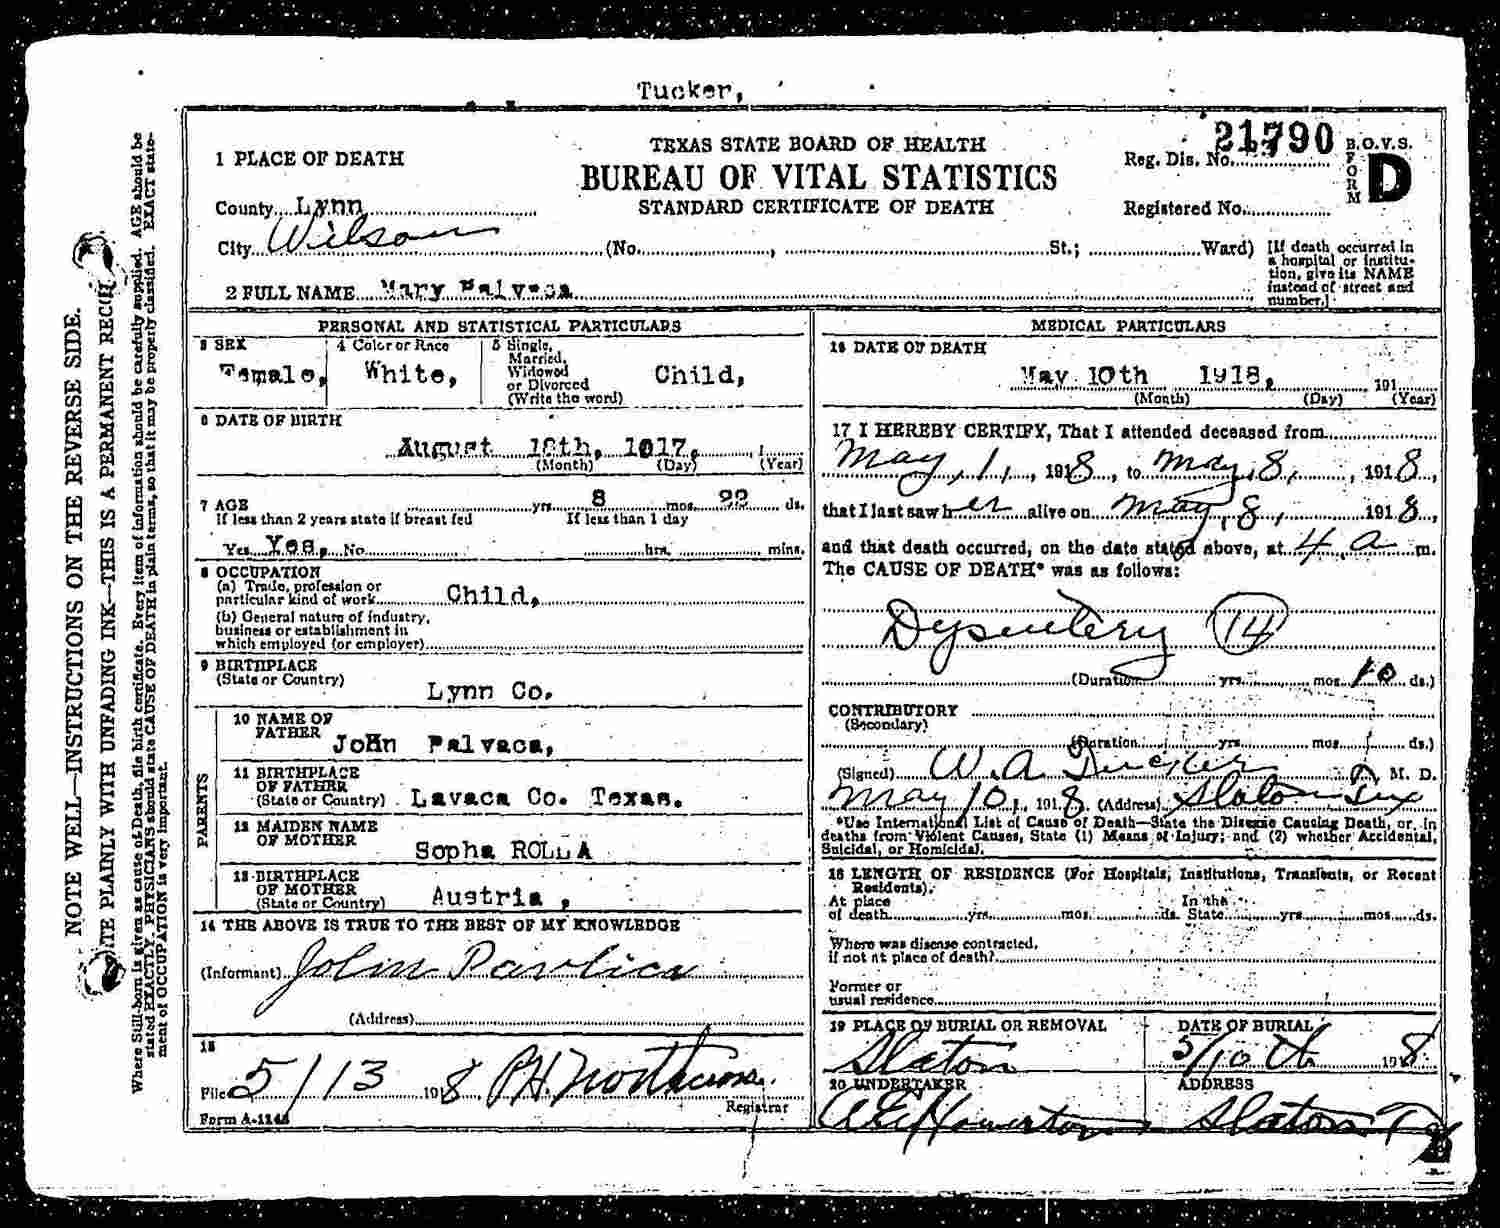 Tucker,
TEXAS STATE BOARD OF HEALTH
BUREAU OF VITAL STATISTICS
STANDARD CERTIFICATE OF DEATH
Reg. Dis. No. 21790
B.O.V.S.
FORM D
Registered No.
1 PLACE OF DEATH
County Lynn
City Wilson (No. , St.; Ward)
[If death occurred in
a hospital or institu-
tion, give its NAME
instead of street and
number.]
2 FULL NAME Mary Palvaca
PERSONAL AND STATISTICAL PARTICULARS
3 SEX
Female,
4 Color or Race
White,
5 Single,
Married,
Widowed
or Divorced
(Write the word)
Child,
6 DATE OF BIRTH
August 18th, 1917,
(Month) (Day) (Year)
7 AGE yrs. 8 mos. 22 ds.
If less than 2 years state if breast fed If less than 1 day
Yes Yes, No hrs. mins.
8 OCCUPATION
(a) Trade, profession or
particular kind of work Child,
(b) General nature of industry,
business or establishment in
which employed (or employer)
9 BIRTHPLACE
(State or Country)
Lynn Co.
PARENTS
10 NAME OF
FATHER JoHn Palvaca,
11 BIRTHPLACE
OF FATHER
(State or Country) Lavaca Co. Texas.
12 MAIDEN NAME
OF MOTHER Sopha ROLLA
13 BIRTHPLACE
OF MOTHER
(State or Country) Austria ,
14 THE ABOVE IS TRUE TO THE BEST OF MY KNOWLEDGE
(Informant) John Pavlica
(Address)
15
File 5/13 1918 P.H. Northcross
Registrar
Form A-1143
MEDICAL PARTICULARS
16 DATE OF DEATH
May 10th 1918, 191
(Month) (Day) (Year)
17 I HEREBY CERTIFY, That I attended deceased from
May, 1, 1918, to May, 8, , 1918,
that I last saw her alive on May, 8, 1918,
and that death occurred, on the date stated above, at 4, a m.
The CAUSE OF DEATH* was as follows:
Dysentery 14
(Duration yrs. mos. 10 ds.)
CONTRIBUTORY
(Secondary)
(Duration yrs. mos. ds.)
(Signed) W. A. Tucker M. D.
May 10, 1918 (Address) Slaton Tex
*Use International List of Cause of Death—State the Disease Causing Death, or, in
deaths from Violent Causes, State (1) Means of Injury; and (2) whether Accidental,
Suicidal, or Homicidal.
18 LENGTH OF RESIDENCE (For Hospitals, Institutions, Transients, or Recent
Residents).
At place In the
of death yrs. mos. ds. State yrs. mos. ds.
Where was disease contracted,
if not at place of death?
Former or
usual residence
19 PLACE OF BURIAL OR REMOVAL
Slaton
DATE OF BURIAL
5/10th 1918
20 UNDERTAKER
A E Howerton
ADDRESS
Slaton Tx
NOTE WELL—INSTRUCTIONS ON THE REVERSE SIDE.
PLAINLY WITH UNFADING INK—THIS IS A PERMANENT
Where Still-born is given as cause of Death, file birth certificate. Every item of information should be carefully supplied. AGE should be
stated EXACTLY. PHYSICIANS should state CAUSE OF DEATH in plain terms, so that it may be properly classified. EXACT state-
ment of OCCUPATION is very important.